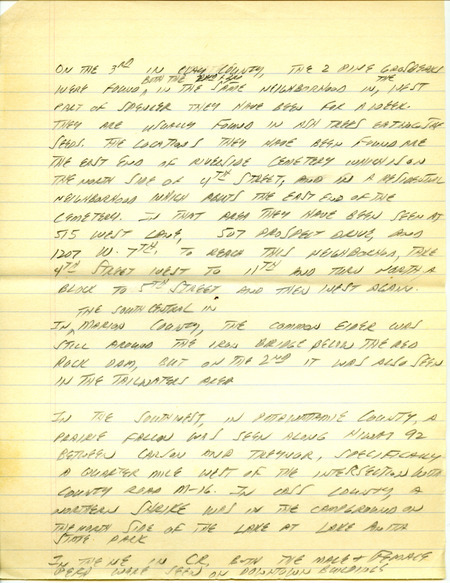 ON THE 3RD IN CLAY COUNTY, THE 2 PINE GROSBEAKS
BOTH THE
WERE FOUND, IN THE SAME NEIGHBORHOOD IN THE WEST
PART OF SPENCER THEY HAVE BEEN FOR A WEEK.
THEY ARE USUALLY FOUND IN ASH TREES EATING THE
SEEDS. THE LOCATIONS THEY HAVE BEEN FOUND ARE
THE EAST END OF RIVERSIDE CEMETERY WHICH IS ON
THE NORTH SIDE OF 4TH STREET, AND IN A RESIDENTIAL
NEIGHBORHOOD WHICH ABUTS THE EAST END OF THE
CEMETERY. IN THAT AREA THEY HAVE BEEN SEEN AT
515 WEST LANE, 507 PROSPECT DRIVE, AND
1207 W. 7TH. TO REACH THIS NEIGHBORHOOD, TAKE
4TH STREET WEST TO 11TH AND TURN NORTH A
BLOCK TO 5TH STREET AND THEN WEST AGAIN.
THE SOUTH CENTRAL IN
IN, MARION COUNTY, THE COMMON EIDER WAS
STILL AROUND THE IRON BRIDGE BELOW THE RED
ROCK DAM, BUT ON THE 2ND IT WAS ALSO SEEN
IN THE TAILWATERS AREA
IN THE SOUTHWEST, IN POTTAWATTAMIE COUNTY, A
PRAIRIE FALCON WAS SEEN ALONG HIWAY 92
BETWEEN CARSON AND TREYNOR, SPECIFICALLY
A QUARTER MILE WEST OF THE INTERSECTION WITH
COUNTY ROAD M-16. IN CASS COUNTY, A
NORTHERN SHRIKE WAS IN THE CAMPGROUND ON
THE NORTH SIDE OF THE LAKE AT LAKE ANITA
STATE PARK
IN THE NE IN CR, BOTH THE MALE + FEMALE
WERE SEEN ON DOWNTOWN BUILDINGS